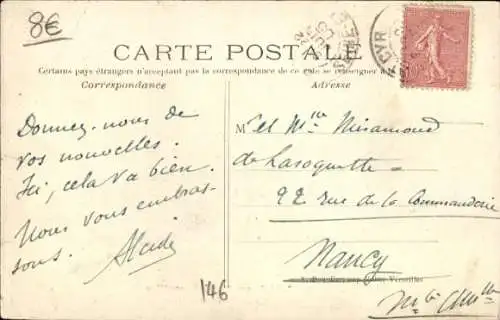 8€
CARTE POSTALE
Certains pays étrangers n'acceptent pas la correspondance de ce côté se renseigner à
Correspondance
Adresse
Donnez-nous de
vos nouvelles.
Ici, cela va bien.
Nous vous embras-
sons.
M et Mlle Miramond
de Lasoquette
92 rue de la Commanderie
Nancy
Versailles
Mthe Mlle
146